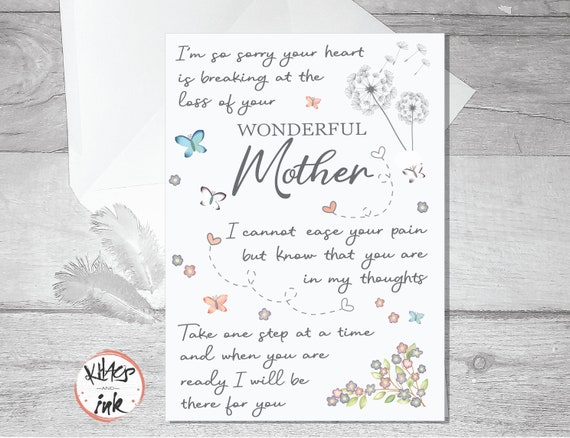 I'm so sorry your heart
is breaking at the
loss of your
WONDERFUL
Mother
I cannot ease your pain
but know that you are
in my thoughts
Take one step at a time
and when you are
ready I will be
there for you
KHAOS
AND
ink